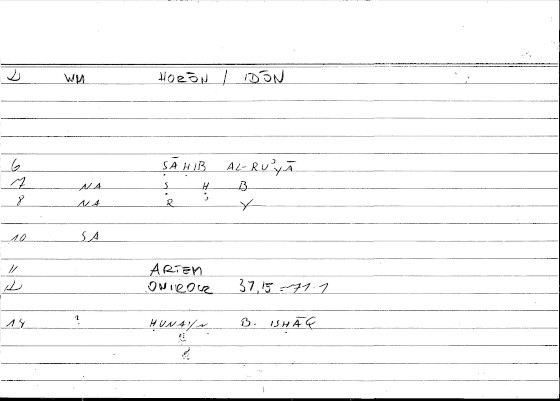 WM HORŌN / IDŌN
6 ṢĀḤIB AL-RUʾYĀ
7 NA Ṣ Ḥ B
8 NA R ʾ Y
10 SA
11 ARTEM
12 ONIROCR 37,15 = 71.1
14 ? ḤUNAYN B. ISḤĀQ